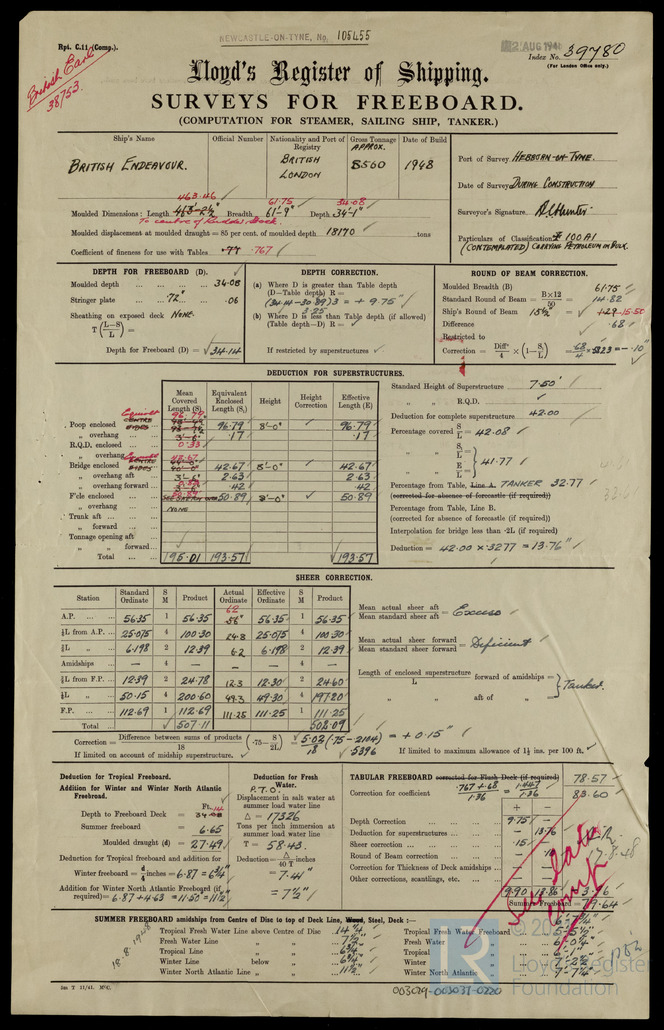 Rpt. C.11. (Comp.).
NEWCASTLE-ON-TYNE, No. 105455
2 AUG 194
Index No. 39780
(For London Office only.)
British Earl
38753.
Lloyd's Register of Shipping.
SURVEYS FOR FREEBOARD.
(COMPUTATION FOR STEAMER, SAILING SHIP, TANKER.)
Ship's Name
Official Number
Nationality and Port of Registry
Gross Tonnage
APPROX.
Date of Build
BRITISH ENDEAVOUR.
BRITISH
LONDON
8560
1948
Port of Survey HEBBURN-ON-TYNE.
Date of Survey DURING CONSTRUCTION
Surveyor's Signature
Particulars of Classification 100A1
(CONTEMPLATED) CARRYING PETROLEUM IN BULK.
463.46 61.75 34.08
Moulded Dimensions: Length Breadth 61'-9" Depth 34'-1"
To centre of Rudder Stock
Moulded displacement at moulded draught = 85 per cent. of moulded depth 18170 tons
Coefficient of fineness for use with Tables .77 .767
DEPTH FOR FREEBOARD (D).
Moulded depth ... 34.08
Stringer plate ... .72" ... .06
Sheathing on exposed deck NONE.
T (L-S/L) =
Depth for Freeboard (D) = 34.14
DEPTH CORRECTION.
(a) Where D is greater than Table depth
(D-Table depth) R =
(34.14-30.89)3 = + 9.75"
3.25
(b) Where D is less than Table depth (if allowed)
(Table depth-D) R =
If restricted by superstructures
ROUND OF BEAM CORRECTION.
Moulded Breadth (B) 61.75
Standard Round of Beam = B×12/50 = 14.82
Ship's Round of Beam = 15½" = 15.50
Difference .68
Restricted to
Correction = Diffce/4 × (1-S₁/L) = .68/4 × .5823 = -.10
DEDUCTION FOR SUPERSTRUCTURES.
Mean Covered Length (S)
Equivalent Enclosed Length (S₁)
Height
Height Correction
Effective Length (E)
Poop enclosed 96.79 96.79 8'-0" 96.79
„ overhang .17 .17
R.Q.D. enclosed
„ overhang
Bridge enclosed 42.67 8'-0" 42.67
„ overhang aft 3'-6" 2.63 2.63
„ overhang forward .42 .42
F'cle enclosed 50.89 50.89 8'-0" 50.89
„ overhang NONE
Trunk aft
„ forward
Tonnage opening aft
„ „ forward
Total 195.01 193.57 193.57
Standard Height of Superstructure 7.50'
„ „ R.Q.D.
Deduction for complete superstructure 42.00
Percentage covered S/L = 42.08
„ „ S₁/L =
E/L = 41.77
Percentage from Table, Line A. TANKER 32.77
(corrected for absence of forecastle (if required))
Percentage from Table, Line B.
(corrected for absence of forecastle (if required))
Interpolation for bridge less than ·2L (if required)
Deduction = 42.00 × .3277 = 13.76"
SHEER CORRECTION.
Station
Standard Ordinate
S M
Product
Actual Ordinate
Effective Ordinate
S M
Product
A.P. 56.35 1 56.35 62 56.35 1 56.35
⅙L from A.P. 25.075 4 100.30 24.8 25.075 4 100.30
⅓L „ 6.198 2 12.39 6.2 6.198 2 12.39
Amidships — 4 — — 4 —
⅓L from F.P. 12.39 2 24.78 12.3 12.30 2 24.60
⅙L „ 50.15 4 200.60 49.3 49.30 4 197.20
F.P. 112.69 1 112.69 111.25 111.25 1 111.25
Total 507.11 502.09
Mean actual sheer aft
Mean standard sheer aft = Excess
Mean actual sheer forward
Mean standard sheer forward = Deficient
Length of enclosed superstructure forward of amidships =
L
„ „ aft of „ =
Tanker.
Correction = Difference between sums of products/18 (·75-S/2L) = 5.02/18 (.75-.2104) = + 0.15"
.5396
If limited on account of midship superstructure.
If limited to maximum allowance of 1½ ins. per 100 ft.
Deduction for Tropical Freeboard.
Addition for Winter and Winter North Atlantic Freeboard.
Ft.
Depth to Freeboard Deck = 34.14
Summer freeboard = 6.65
Moulded draught (d) = 27.49
Deduction for Tropical freeboard and addition for
Winter freeboard = d/4 inches = 6.87 = 6¾"
Addition for Winter North Atlantic Freeboard (if required) = 6.87 + 4.63 = 11.50 = 11½"
Deduction for Fresh Water.
P.T.O.
Displacement in salt water at summer load water line
Δ = 17326
Tons per inch immersion at summer load water line
T = 58.43
Deduction = Δ/40 T inches
= 7.41"
= 7½"
TABULAR FREEBOARD corrected for Flush Deck (if required) 78.57
Correction for coefficient .767+.68/1.36 = 1.447/1.36 83.60
+ −
Depth Correction 9.75 —
Deduction for superstructures — 13.76
Sheer correction .15
Round of Beam correction — .10
Correction for Thickness of Deck amidships —
Other corrections, scantlings, etc.
9.90 13.86 3.96
Summer Freeboard = 79.64
See later comp.
17-8-48
SUMMER FREEBOARD amidships from Centre of Disc to top of Deck Line, Wood, Steel, Deck :—
Tropical Fresh Water Line above Centre of Disc 14¼"
Fresh Water Line „ „ 7½"
Tropical Line „ „ 6¾"
Winter Line below „ 6¾"
Winter North Atlantic Line „ „ 11½"
Tropical Fresh Water Freeboard 5'-5½"
Fresh Water „ 6'-0¼"
Tropical „
Winter „ 7'-2½"
Winter North Atlantic „ 7'-7¼"
18.8.1948
1m T 11/41.
003019-003037-0220
© 20
Lloyd's Register
Foundation